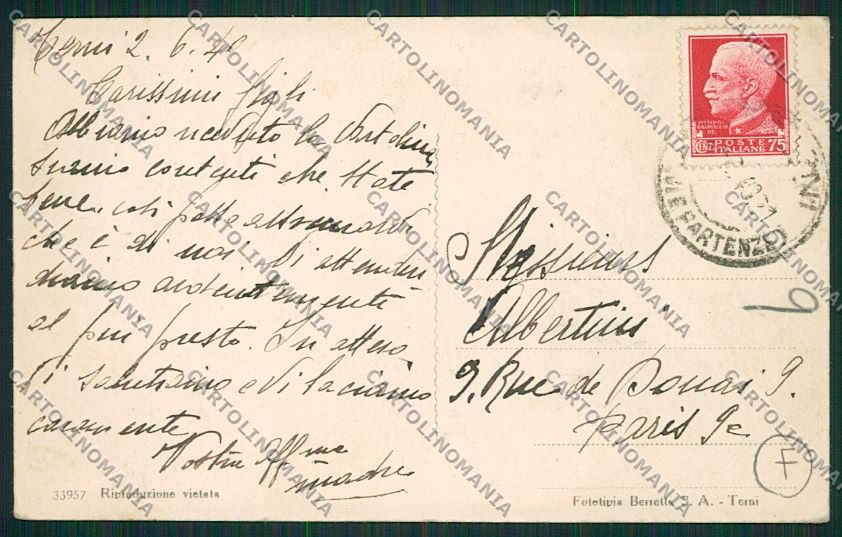 Terni 2. 6. 40
Carissimi figli
Abbiamo ricevuto la Cartolina
siamo contenti che state
bene. così
che è di noi. Vi attendi
diamo ardentemente
al più presto. In attesa
Vi salutiamo e Vi baciamo
caramente
Vostra Aff.ma
madre
33957 Riproduzione vietata
VITTORIO EMANUELE III
POSTE
ITALIANE
CENT 75
TERNI
ARRIVI E PARTENZE
Messieurs
Albertini
9. Rue de Douai 9.
Paris 9e
6
F
Fototipia Berretta S. A. - Terni
CARTOLINOMANIA